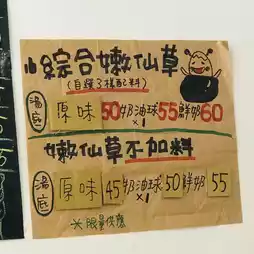 綜合嫩仙草
(自選3樣配料)
湯底 原味50 奶油球×1 55 鮮奶60
嫩仙草不加料
湯底 原味 45 奶油球×1 50 鮮奶 55
※限量供應